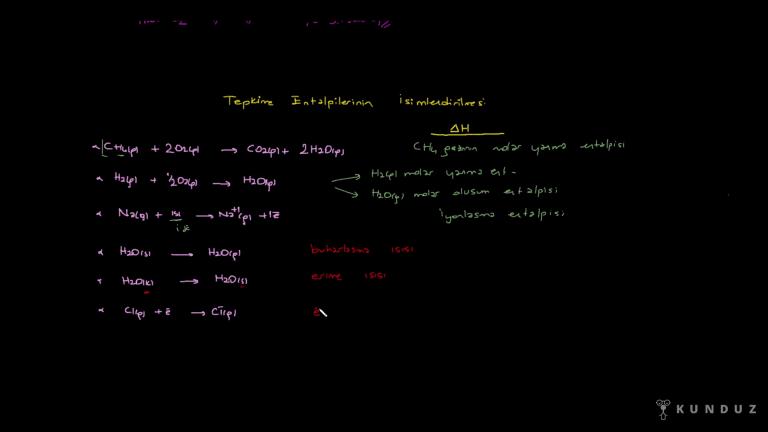 Tepkime Entalpilerinin isimlendirilmesi
ΔH
CH4(g) + 2O2(g) → CO2(g) + 2H2O(g) CH4 gazının molar yanma entalpisi
H2(g) + 1/2O2(g) → H2O(g) H2(g) molar yanma ent.
H2O(g) molar oluşum entalpisi
Na(g) + ısı → Na+1(g) + 1e- iyonlaşma entalpisi
i.e
H2O(s) → H2O(g) buharlaşma ısısı
H2O(k) → H2O(s) erime ısısı
Cl(g) + e- → Cl-(g) e
KUNDUZ